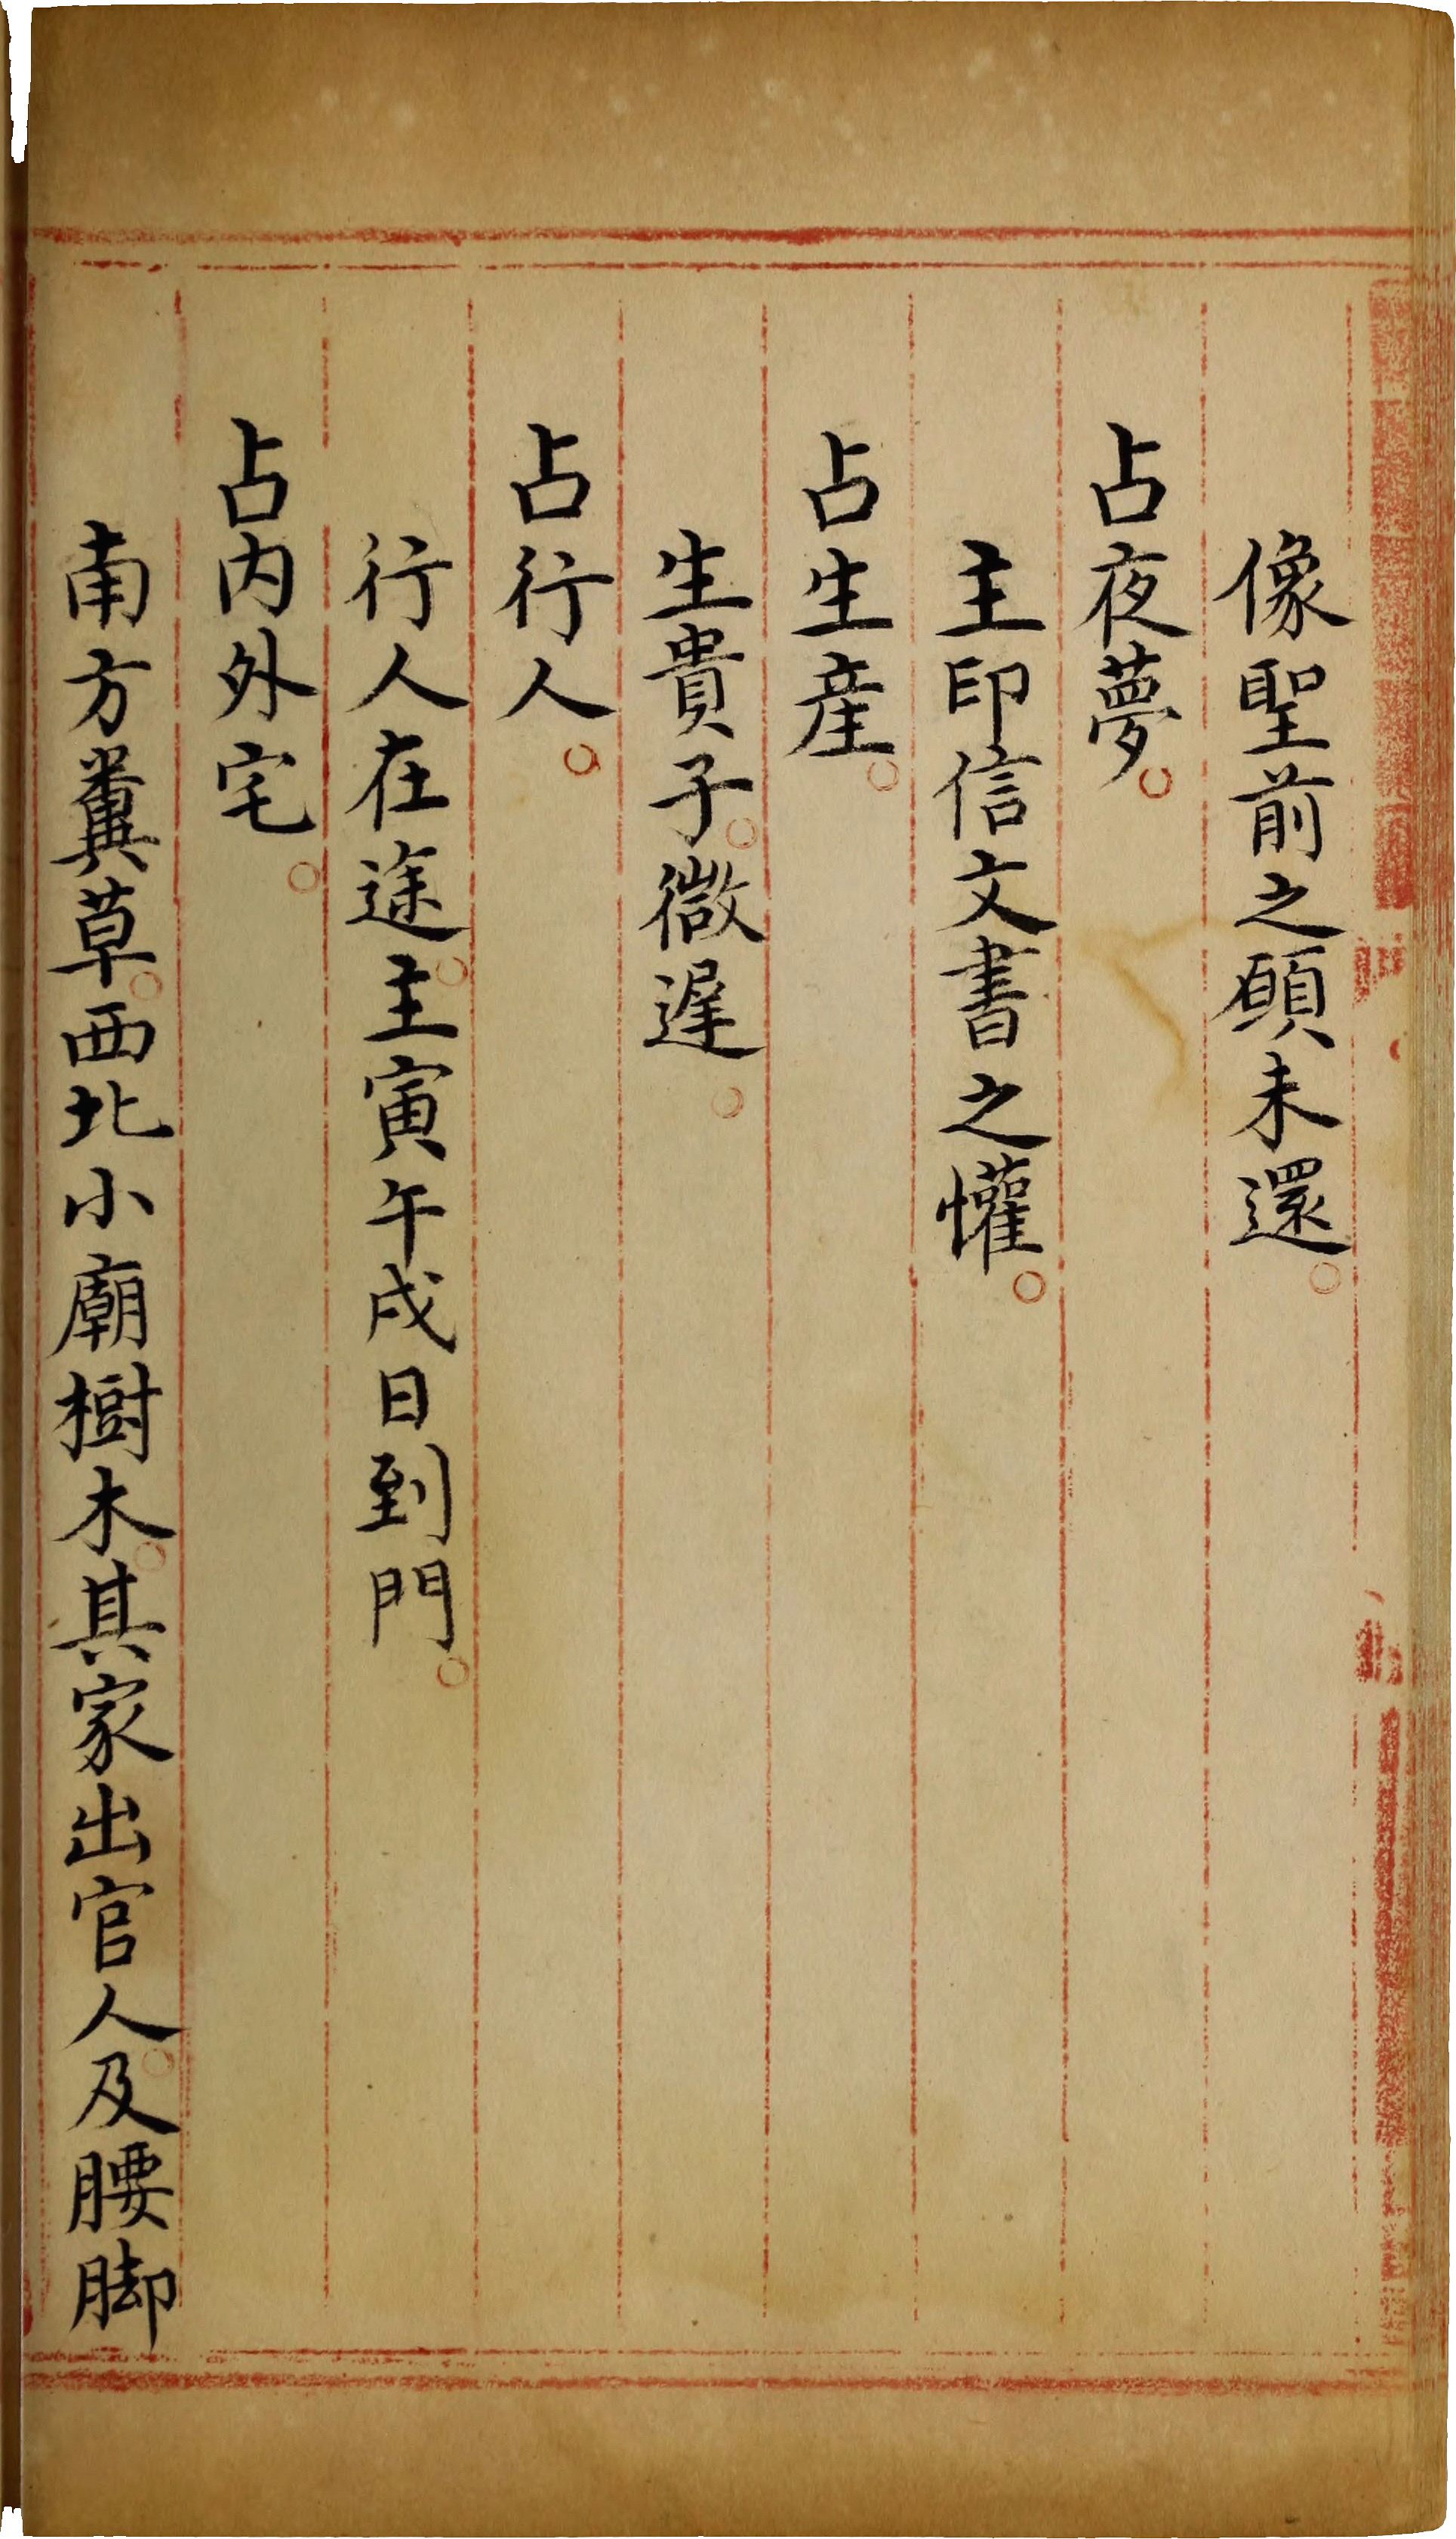 像聖前之願未還。
占夜夢。
主印信文書之懽。
占生産。
生貴子。微遲。
占行人。
行人在途。主寅午戌日到門。
占内外宅。
南方糞草。西北小廟樹木。其家出官人。及腰脚